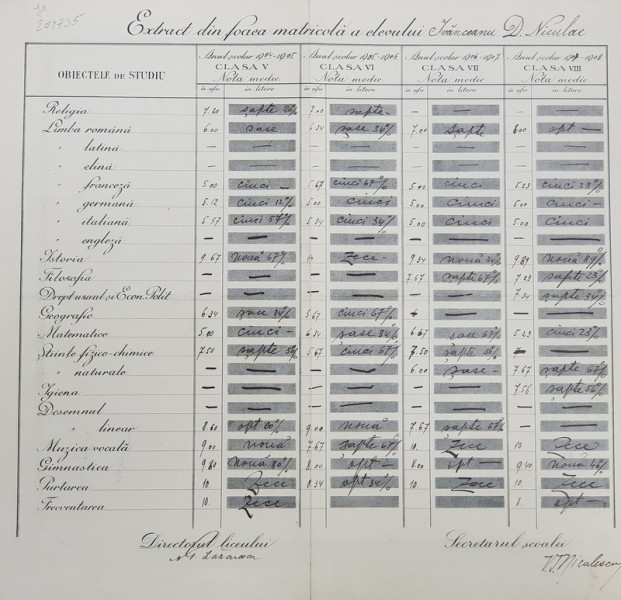 Extract din foaea matricolă a elevului Ivănceanu D. Niculae
OBIECTELE DE STUDIU
Anul școlar 1904-1905 Anul școlar 1905-1906 Anul școlar 1906-1907 Anul școlar 1907-1908
CLASA V CLASA VI CLASA VII CLASA VIII
Nota medie Nota medie Nota medie Nota medie
in cifre in litere in cifre in litere in cifre in litere in cifre in litere
Religia 7.20 șapte 20% 7.00 șapte - — — — —
Limba română 6.00 șase 6.34 șase 34% 7.00 șapte 8.00 opt —
" latină — — — — — — — —
" elină — — — — — — — —
" franceză 5.00 cinci — 5.67 cinci 67% 5.00 cinci 5.23 cinci 23%
" germană 5.12 cinci 12% 5.00 cinci 5.00 cinci 5.00 cinci -
" italiană 5.57 cinci 57% 5.34 cinci 34% 5.00 cinci 5.00 cinci
" engleză — — — — — — — —
Istoria 9.67 nouă 67% zece - 9.34 nouă 34% 9.89 nouă 89%
Filosofia — — — — 7.67 șapte 67% 7.23 șapte 23%
Dreptul uzual și Econ. Polit — — — — — — 7.34 șapte 34%
Geografie 6.34 șase 34% 5.67 cinci 67% — — — —
Matematice 5.00 cinci - 6.34 șase 34% 6.67 șase 67% 5.23 cinci 23%
Științe fizico-chimice 7.50 șapte 50% 5.67 cinci 67% 7.50 șapte 50% — —
" naturale — — — — 6.00 șase - 7.67 șapte 67%
Igiena — — — — — — 7.56 șapte 56%
Desemnul — — — — — — — —
" linear 8.60 opt 60% 9.00 nouă 7.67 șapte 67% — —
Muzica vocală 9.00 nouă 7.67 șapte 67% 10. Zece 10. Zece
Gimnastica 9.80 nouă 80% 8.00 opt — 8.00 opt — nouă
Purtarea 10. Zece 8.34 opt 34% 10. Zece 10. Zece
Frecventarea 10. Zece 8. opt —
Directorul liceului Secretarul școalei